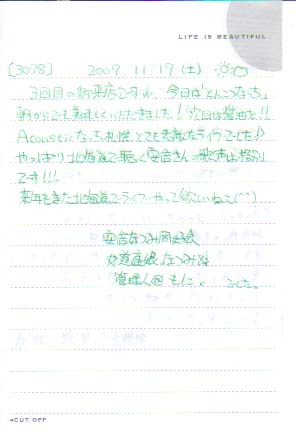 LIFE IS BEAUTIFUL
[3078] 2007.11.17(土)
3回目の御来店ですが、今日は「とんこつなっち」
朝からでも美味しくいただきました!次回は醤油で!!
Acousticなっち札幌、とても素敵なライブでした♪
やっぱり北海道で聴く安倍さんの歌声は格別
です!!!
来年もまた北海道でライブやって欲しいね(^^)
安倍なつみ同好会
北海道産娘。なつみ
管理人@もに。でした。
◂CUT OFF